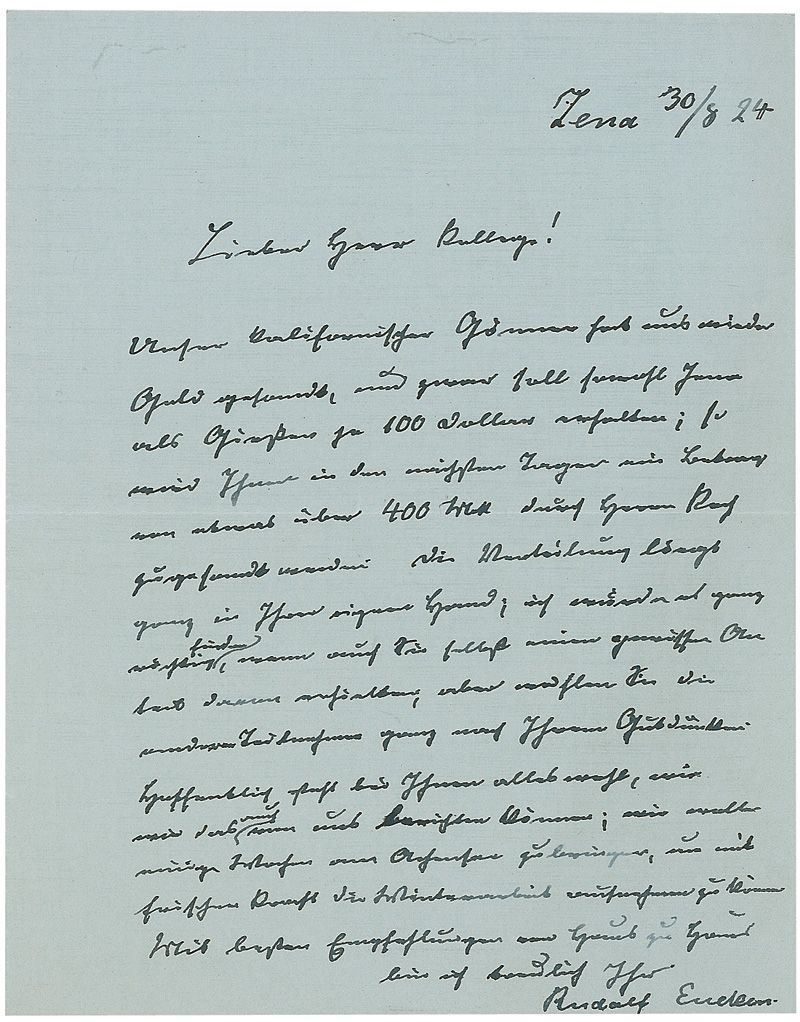 Jena 30/8 24
Lieber Herr Kollege!
Unser kalifornischer Gönner hat uns wieder
Geld gesandt, und zwar soll sowohl Jena
als Gießen je 100 Dollar erhalten; so
wird Ihnen in den nächsten Tagen ein Betrag
von etwas über 400 Mk durch Herrn Koch
zugesandt werden. Die Verteilung liegt
ganz in Ihrer eigenen Hand; ich würde es ganz
richtig finden, wenn auch Sie selbst einen gewissen An
teil daran erhielten, aber wählen Sie die
anderen Teilnehmer ganz nach Ihrem Gutdünken.
Hoffentlich steht bei Ihnen alles wohl, wie
wir das auch von uns berichten können; wir wollen
einige Wochen am Achensee zubringen, um mit
frischer Kraft die Winterarbeit aufnehmen zu können
Mit besten Empfehlungen von Haus zu Haus
bin ich treulich Ihr
Rudolf Eucken.